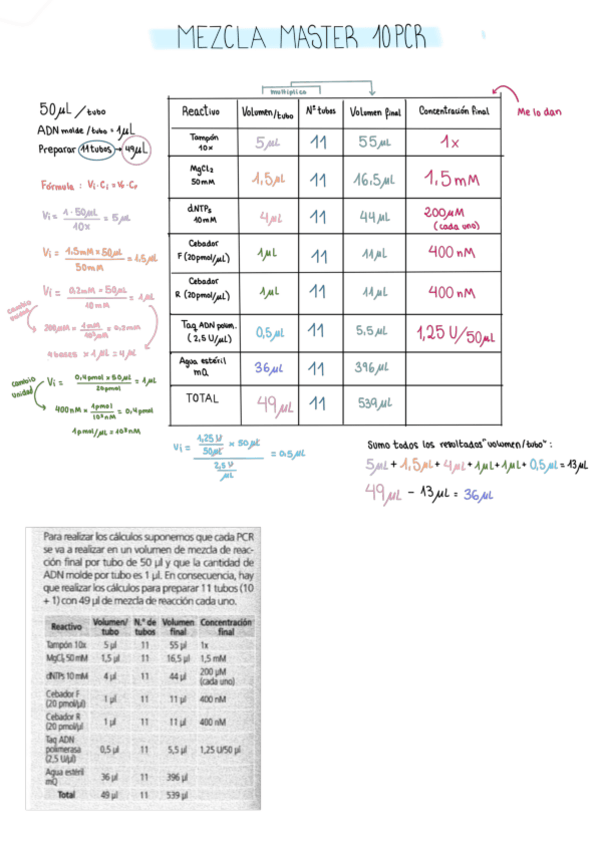 MEZCLA MASTER 10 PCR
multiplica
50µL / tubo
ADN molde / tubo = 1µL
Preparar 11 tubos → 49µL
Fórmula : Vi · Ci = Vf · Cf
Vi = 1 · 50µL / 10x = 5µL
Vi = 1,5mM × 50µL / 50mM = 1,5µL
Vi = 0,2mM × 50µL / 10mM = 1µL
cambio unidad
200µM = 1mM / 10³µM = 0,2mM
4 bases × 1µL = 4µL
cambio unidad
Vi = 0,4pmol × 50µL / 20pmol = 1µL
400nM = 1pmol / 10³nM = 0,4pmol
1pmol/µL = 10³nM
Reactivo Volumen/tubo Nº tubos Volumen final Concentración final
Me lo dan
Tampón 10x 5µL 11 55µL 1x
MgCl₂ 50mM 1,5µL 11 16,5µL 1,5mM
dNTPs 10mM 4µL 11 44µL 200µM (cada uno)
Cebador F (20pmol/µL) 1µL 11 11µL 400nM
Cebador R (20pmol/µL) 1µL 11 11µL 400nM
Taq ADN polim. (2,5 U/µL) 0,5µL 11 5,5µL 1,25 U/50µL
Agua estéril mQ 36µL 11 396µL
TOTAL 49µL 11 539µL
Vi = 1,25 U / 50µL × 50µL / 2,5 U / µL = 0,5µL
Sumo todos los resultados "volumen/tubo":
5µL + 1,5µL + 4µL + 1µL + 1µL + 0,5µL = 13µL
49µL - 13µL = 36µL
Para realizar los cálculos suponemos que cada PCR
se va a realizar en un volumen de mezcla de reac-
ción final por tubo de 50 µl y que la cantidad de
ADN molde por tubo es 1 µl. En consecuencia, hay
que realizar los cálculos para preparar 11 tubos (10
+ 1) con 49 µl de mezcla de reacción cada uno.
Reactivo Volumen/ tubo N.º de tubos Volumen final Concentración final
Tampón 10x 5 µl 11 55 µl 1x
MgCl₂ 50 mM 1,5 µl 11 16,5 µl 1,5 mM
dNTPs 10 mM 4 µl 11 44 µl 200 µM (cada uno)
Cebador F (20 pmol/µl) 1 µl 11 11 µl 400 nM
Cebador R (20 pmol/µl 1 µl 11 11 µl 400 nM
Taq ADN polimerasa (2,5 U/µl) 0,5 µl 11 5,5 µl 1,25 U/50 µl
Agua estéril mQ 36 µl 11 396 µl
Total 49 µl 11 539 µl